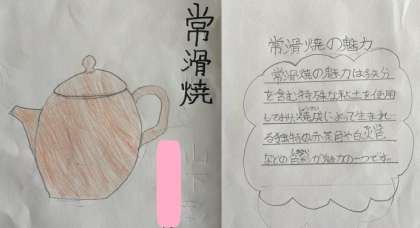 常滑焼
常滑焼の魅力
常滑焼の魅力は鉄分
を含む特殊な粘土を使用
しており、焼成によって生まれ
る独特の赤茶色や
などの が魅力の一つです。